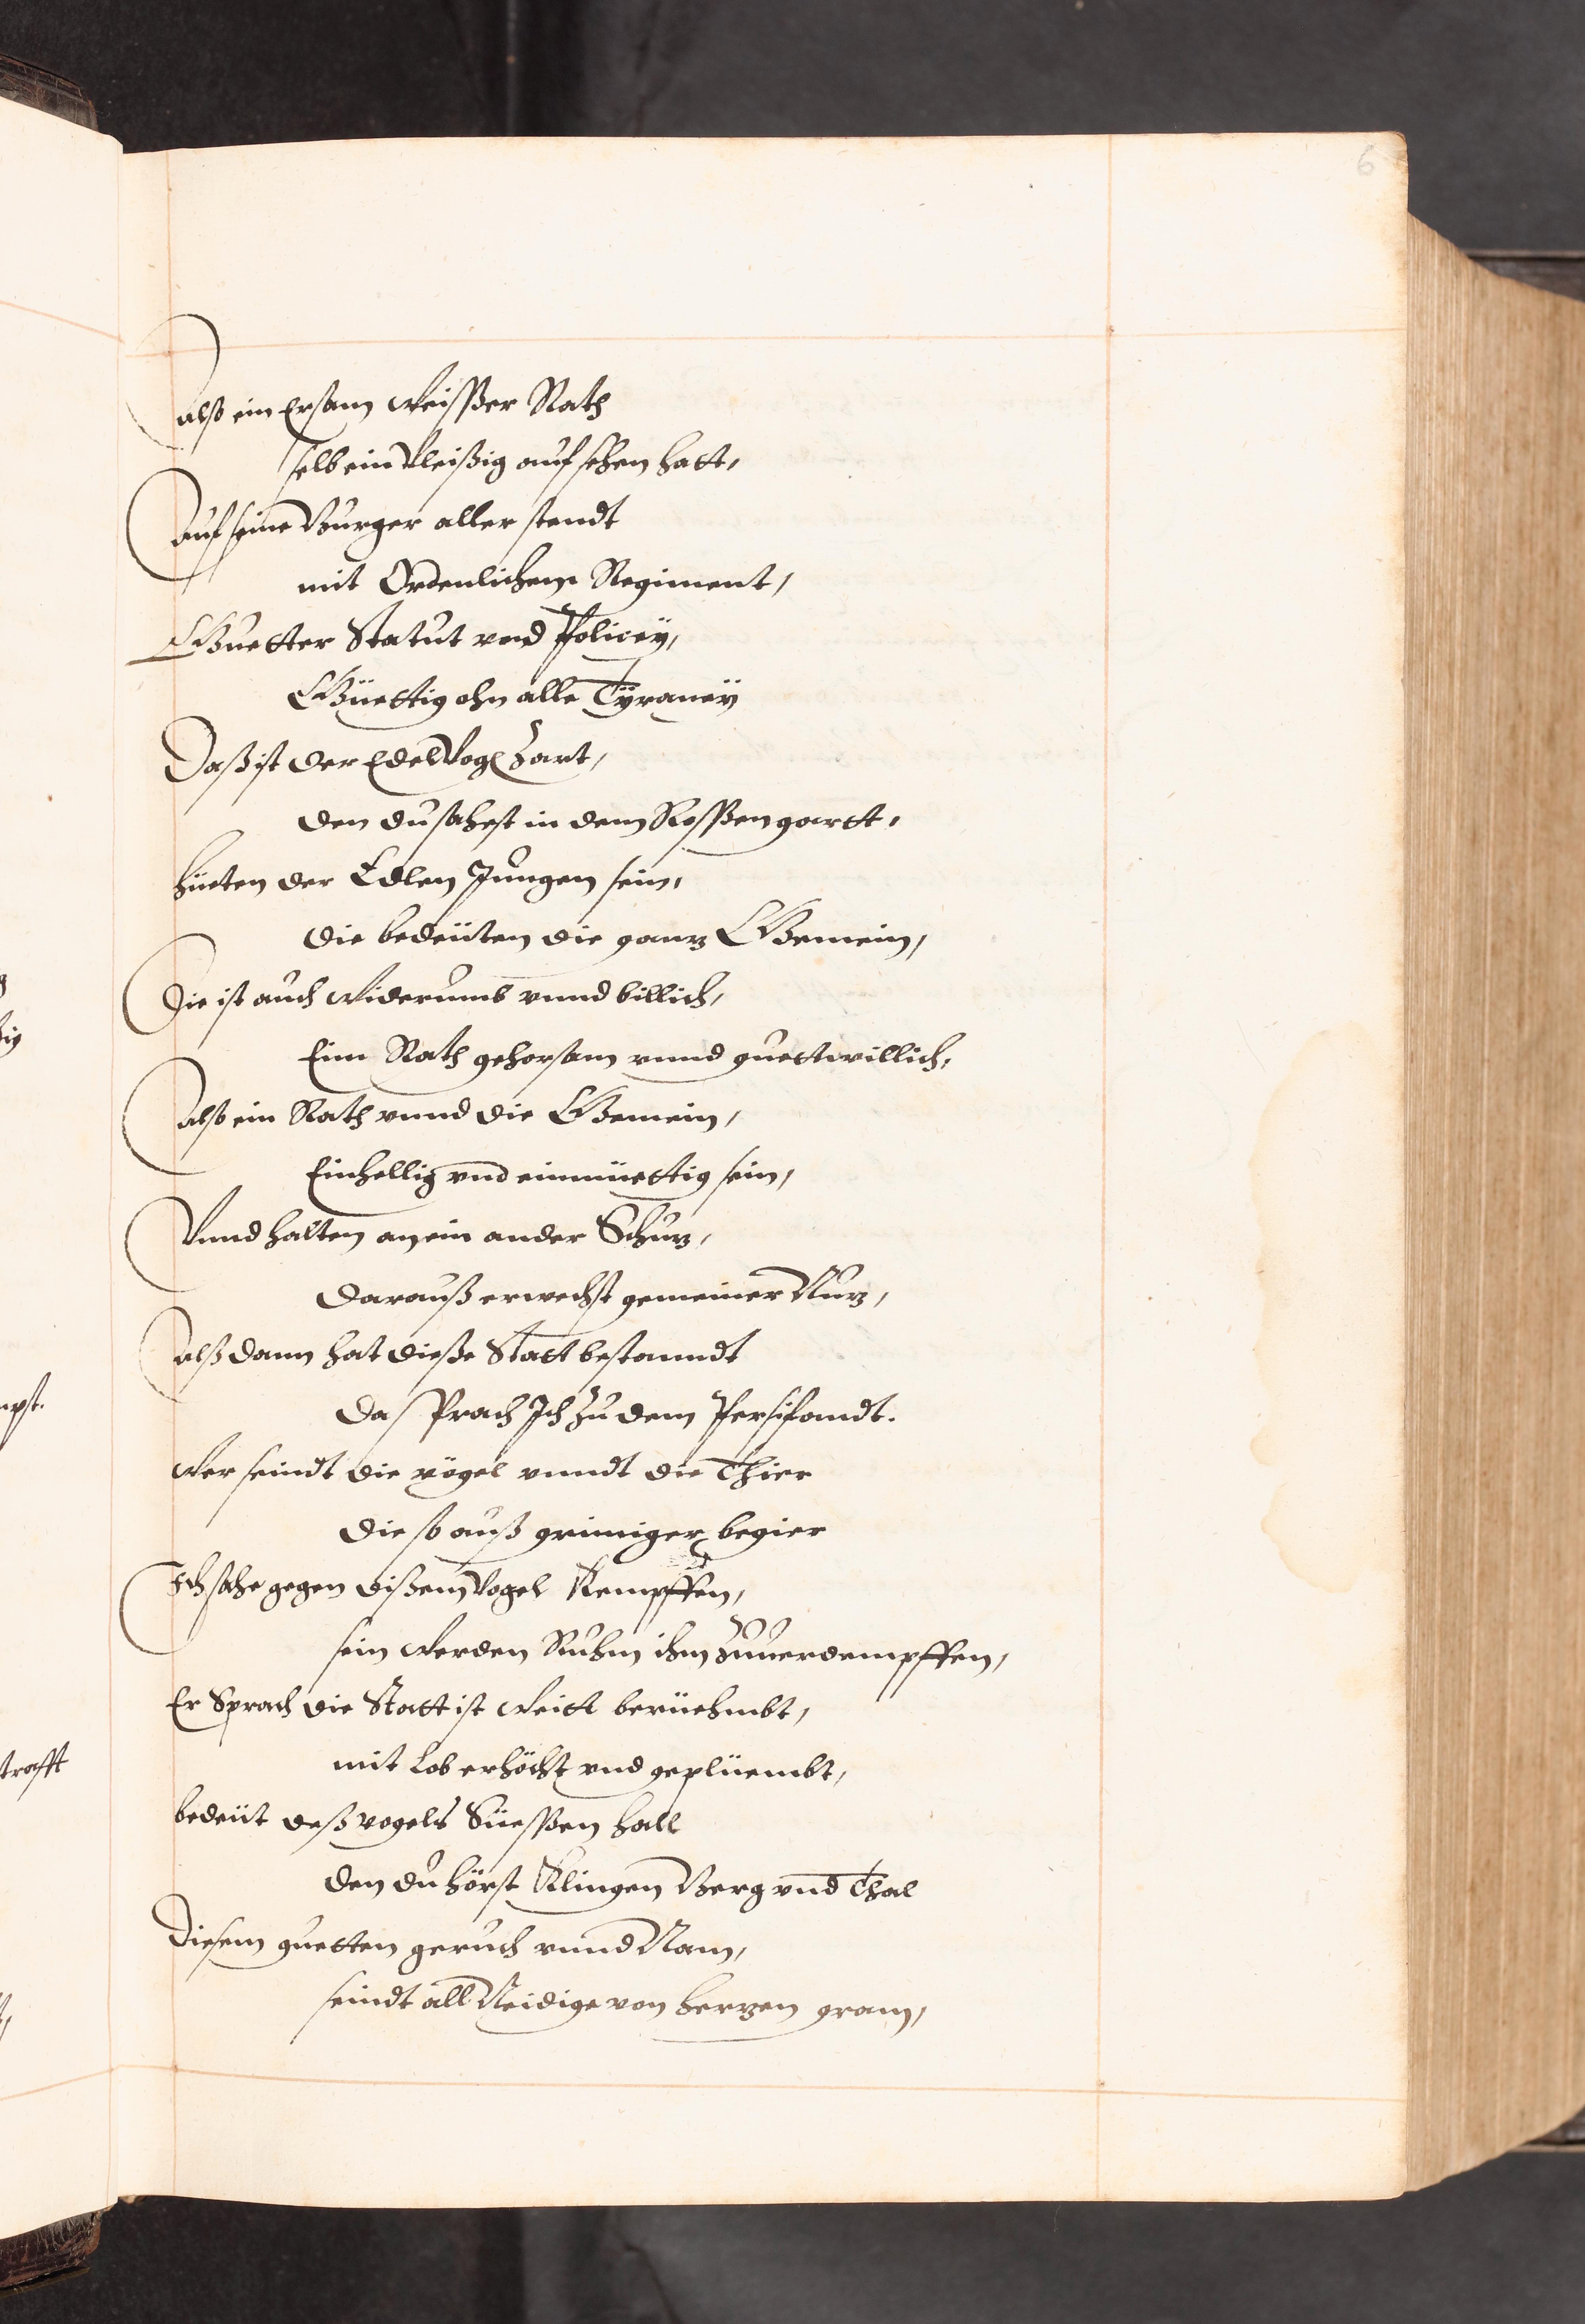 6
Also ein Ersam Weisser Rath
selb ein Vleißig auf sehen hatt,
Auf seine Burger aller standt
mit Ordenlichem Regiment,
Guetter Statut vnd Policey,
Güettig ohn alle Tÿraneÿ
Daß ist der Edel Vogl Zart,
den du sahest in dem Rosßengartt,
hüeten der Edlen Jungen sein,
die bedeüten die ganz Gemein,
Die ist auch Widerumb vnnd billich,
Eim Rath gehorsam vnnd guettwillich,
Also ein Rath vnnd die Gemein,
Einhellig vnd einmüettig sein,
Vnnd halten an ein ander Schuz,
darauß erwechst gemeiner Nuz,
Alß dann hat dieße Statt bestanndt
da sprach Ich Zu dem Persifandt.
Wer seindt die vögel vnndt die Thier
die so auß grimiger begier
Ich sahe gegen dißem Vogel Kempffen,
sein Werden Ruhm ihm Zuuerdempffen,
Er Sprach die Statt ist Weitt berüehmbt,
mit Lob erhöcht vnd geplüembt,
bedeüt deß vogels Süessen hall
den du hörst Klingen Berg vnd Thal
Diesem guetten geruch vnnd Nam,
seindt all Neidige von herzen gram,